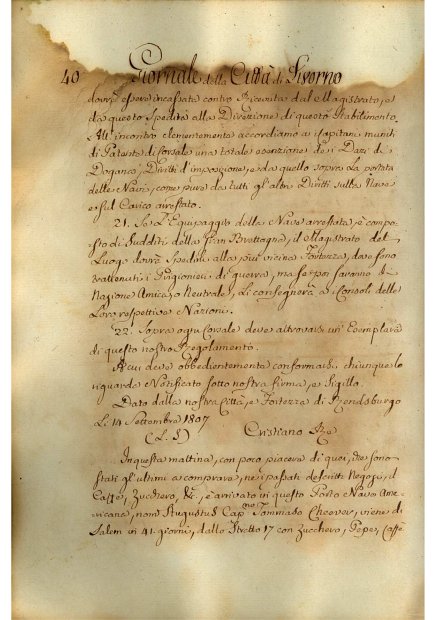 40 Giornale della Città di Livorno
dovrà essere incassata contro Ricevuta dal Magistrato, e
da questo spedita alla Direzione di questo Stabilimento.
All' incontro clementemente accordiamo a Capitani muniti
di Patente di Corsale una totale esenzione dei Dazi di
Dogana, Diritti d'imposizione, e da quello sopra la portata
delle Navi, come pure da tutti gl'altri Diritti sulla Nave
e sul Carico arrestato.
21. Se l'Equipaggio della Nave arrestata, è compo-
sto di Sudditi della Gran Brettagna, il Magistrato del
Luogo dovrà spedirli alla più vicina Fortezza, dove sono
trattenuti i Prigionieri di guerra, ma se poi saranno di
Nazione Amica, o Neutrale, li consegnerà a Consoli delle
Loro respettive Nazioni.
22. Sopra ogni Corsale deve altrovarsi un' Esemplare
di questo nostro Regolamento.
A cui deve obbedientemente conformarsi chiunque lo
riguarda Notificato sotto nostra firma, e Sigillo.
Dato dalla nostra Città, e Fortezza di Rendsburgo
Li 14 Settembre 1807
(L. S) Cristiano Re
In questa mattina, con poco piacere di quei, che sono
stati gl'ultimi a comprare, ne i passati descritti Negozj, il
Caffe, Zucchero, &c, è arrivato in questo Porto e Nave Ame-
ricana, nom. Augustus Cap.no Tommaso Cheever, viene di
Salem in 41 giorni, dallo Stretto 17 con Zucchero, Pepe, Caffè